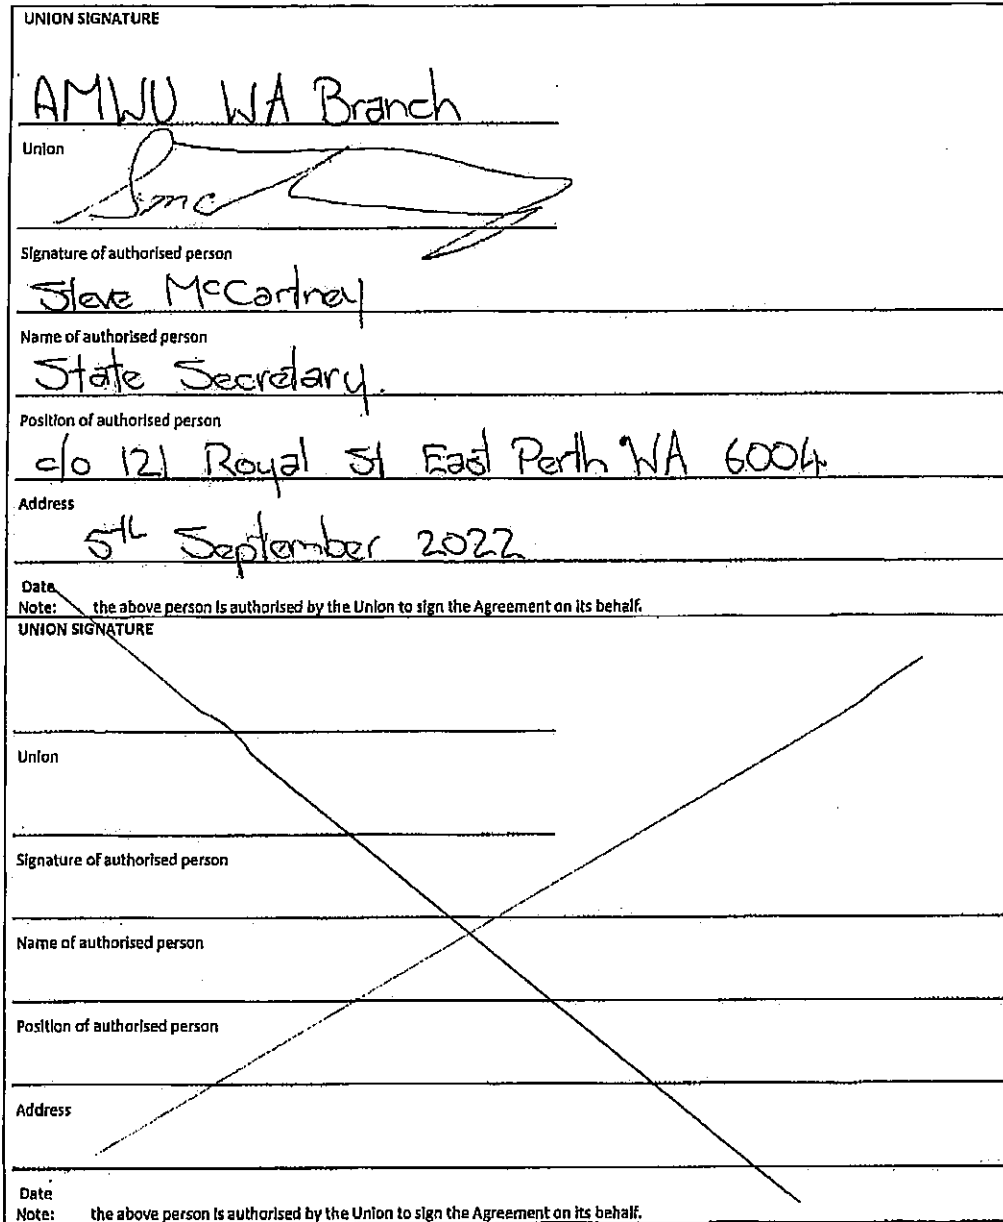 UNION SIGNATURE
AMWU WA Branch
Union
Smc
Signature of authorised person
Steve McCartney
Name of authorised person
State Secretary.
Position of authorised person
c/o 121 Royal St East Perth WA 6004
Address
5th September 2022
Date
Note: the above person is authorised by the Union to sign the Agreement on its behalf.
UNION SIGNATURE
Union
Signature of authorised person
Name of authorised person
Position of authorised person
Address
Date
Note: the above person is authorised by the Union to sign the Agreement on its behalf.